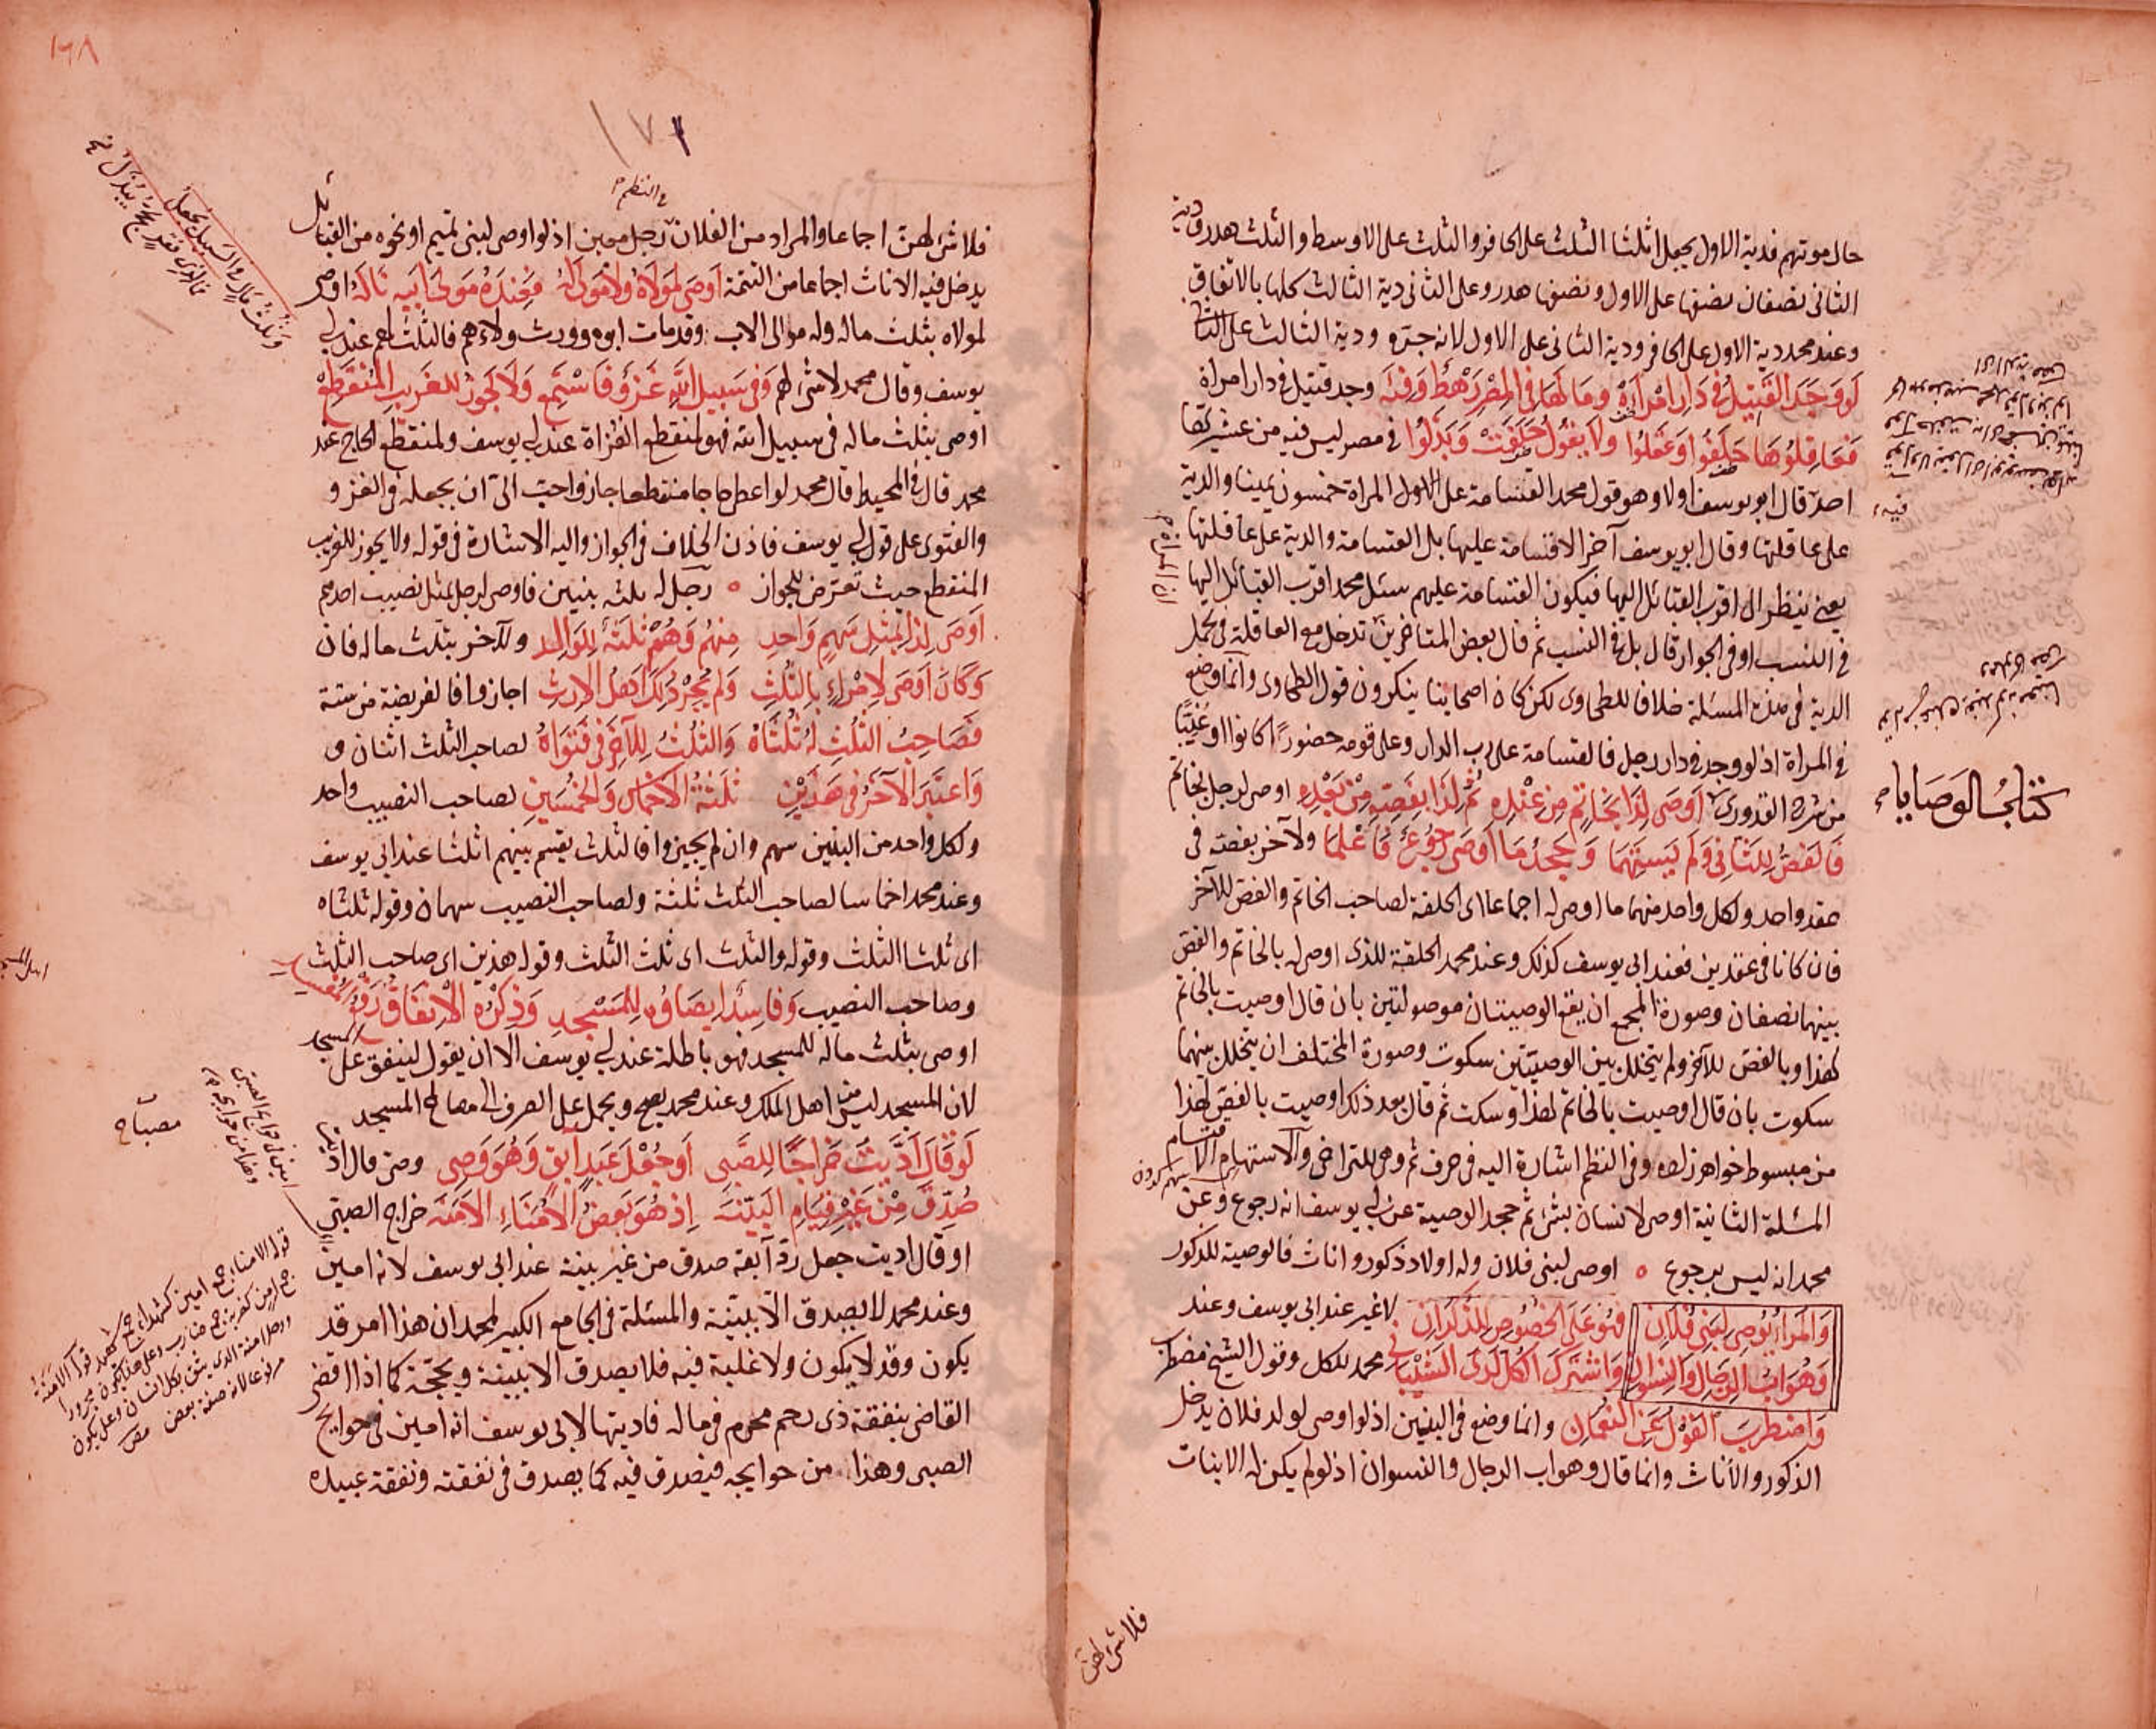 حال موتهم فدية الاول يجعل اثلثا الثلث على الحافر والثلث على الاوسط والثلث هدر ودية
الثانى نصفان نصفها على الاول ونصفها هدر وعلى الثانى دية الثالث كلها بالاتفاق
وعند محمد دية الاول على الحافر ودية الثانى على الاول لانه جره ودية الثالث على الثانى
لو وجد القتيل فى دار امراة وما لها فى المصر رهط وفئه وجد قتيل فى دار امراة
فعاقلوها حلفوا وعقلوا ولا يقول حلفت وبذلوا فى مصر ليس فيه من عشيرتها
احد قال ابو يوسف اولا وهو قول محمد القسامة على المراة خمسون يمينا والدية
على عاقلتها وقال ابو يوسف آخرا لا قسامة عليها بل القسامة والدية على عاقلتها
يعنى ينظر الى اقرب القبائل اليها فيكون القسامة عليهم سئل محمد اقرب القبائل اليها
فى النسب او فى الجوار قال بل فى النسب ثم قال بعض المتاخرين تدخل مع العاقلة فى تحمل
الدية فى هذه المسئلة خلافا للطحاوى لكن كان اصحابنا ينكرون قول الطحاوى وانما وضع
فى المراة اذ لو وجد فى دار رجل فالقسامة على رب الدار وعلى قومه حضورا كانوا او غيبا
كتاب الوصايا
من شرح القدورى اوصى لذا بخاتم من عنده ثم لذا بفصه من بعده اوصى لرجل بخاتم
فالفص للثانى ولم يسهمها وجحد ما اوصى رجوع فاعلما ولآخر بفصه فى
عقد واحد ولكل واحد منهما ما اوصى له اجماعا اى الحلقة لصاحب الخاتم والفص للآخر
فان كانا فى عقدين فعند ابى يوسف كذلك وعند محمد الحلقة للذى اوصى له بالخاتم والفص
بينهما نصفان وصورة المجمع ان يقع الوصيتان موصولتين بان قال اوصيت بالخاتم
لهذا وبالفص للآخر ولم يتخلل بين الوصيتين سكوت وصورة المختلف ان يتخلل بينهما
سكوت بان قال اوصيت بالخاتم لهذا وسكت ثم قال بعد ذلك اوصيت بالفص لهذا
من مبسوط خواهر زاده وفى النظم اشارة اليه فى حرف ثم وهى للتراخى والاستهام الاقتسام
المسئلة الثانية اوصى لانسان بشئ ثم جحد الوصية عن ابى يوسف انه رجوع وعن
محمد انه ليس برجوع اوصى لبنى فلان وله اولاد ذكور واناث فالوصية للذكور
والمرء يوصى لبنى فلان فهو على الخصوص للذكران لا غير عند ابى يوسف وعند
وهو اب الرجال والنسوان واشترك الكل لدى الشيبانى محمد للكل وقول الشيخ مضطرب
واضطرب القول عن النعمان وانما وضع فى البنين اذ لو اوصى لولد فلان يدخل
الذكور والاناث وانما قال وهو اب الرجال والنسوان اذ لو لم يكن له الا بنات
فلا شئ لهن
١٦٨
١٧١
فى النظم
فلا شئ لهن اجماعا والمراد من الفلان رجل معين اذ لو اوصى لبنى تميم او نحوه من القبائل
يدخل فيه الاناث اجماعا من التتمة اوصى لمولاه ولا مولى له فعنده مولى ابيه ناله اوصى
لمولاه بثلث ماله وله موالى الاب وقد مات ابوه وورث ولاءهم فالثلث لهم عند ابى
يوسف وقال محمد لا شئ لهم وفى سبيل الله غزو فاستمع ولا تجوز للغريب المنقطع
اوصى بثلث ماله فى سبيل الله فهو لمنقطع الغزاة عند ابى يوسف ولمنقطع الحاج عند
محمد قال فى المحيط قال محمد لو اعطى حاجا منقطعا جاز واحب الى ان يجعله فى الغزو
والفتوى على قول ابى يوسف فاذن الخلاف فى الجواز واليه الاشارة فى قوله ولا يجوز للغريب
المنقطع حيث تعرض للجواز رجل له ثلثه بنين فاوصى لرجل بمثل نصيب احدهم
اوصى لذا بمثل سهم واحد منهم وهم ثلثة للوالد وللآخر بثلث ماله فان
وكان اوصى لامرئ بالثلث ولم يجز ذلك اهل الارث اجازوا فالفريضة من ستة
فصاحب الثلث له ثلثاه والثلث للآخر فى فتواه لصاحب الثلث اثنان و
واعتبر الآخر فى هذين ثلثة الاخماس والخمسين لصاحب النصيب واحد
ولكل واحد من البنين سهم وان لم يجيزوا فالثلث يقسم بينهم اثلثا عند ابى يوسف
وعند محمد اخماسا لصاحب الثلث ثلثة ولصاحب النصيب سهمان وقوله ثلثاه
اى ثلثا الثلث وقوله والثلث اى ثلث الثلث وقوله هذين اى صاحب الثلث
وصاحب النصيب وفاسد ايصاؤه للمسجد وذكره الانفاق
اوصى بثلث ماله للمسجد فهو باطلة عند ابى يوسف الا ان يقول لينفق على المسجد
لان المسجد ليس من اهل الملك وعند محمد يصح ويحمل على الصرف الى مصالح المسجد
لو قال اديت خراجا للصبى او جعل عبد آبق وهو وصى وصى قال اديت
صدق من غير قيام البينه اذ هو بعض الامناء الامنه خراج الصبى
او قال اديت جعل رد آبقه صدق من غير بينة عند ابى يوسف لانه امين
وعند محمد لا يصدق الا ببينة والمسئلة فى الجامع الكبير لمحمد ان هذا امر قد
يكون وقد لا يكون ولا غلبة فيه فلا يصدق الا ببينة وبحجة كما اذا اقضى
القاضى بنفقة ذى رحم محرم فى ماله فاديتها لابى يوسف انه امين فى حوايج
الصبى وهذا من حوايجه فيصدق فيه كما يصدق فى نفقته ونفقة عبيده
مصباح